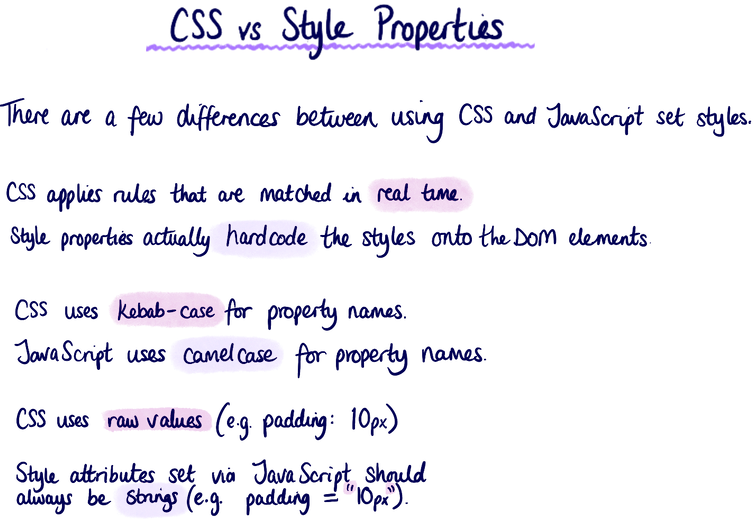 CSS vs Style Properties
There are a few differences between using CSS and JavaScript set styles.
CSS applies rules that are matched in real time.
Style properties actually hardcode the styles onto the DOM elements.
CSS uses kebab-case for property names.
JavaScript uses camelcase for property names.
CSS uses raw values (e.g. padding: 10px)
Style attributes set via JavaScript should
always be strings (e.g. padding = "10px").